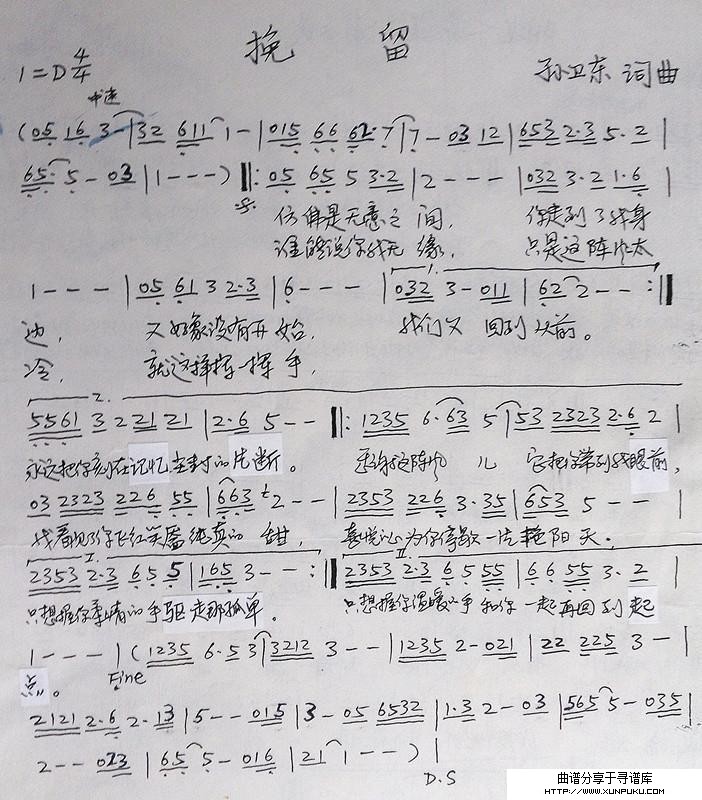 挽 留
1=D 4/4
中速
孙卫东 词曲
(05 16 3-|32 611 1-|015 66 62·7|7-03 12|653 2·3 5·2|
65·5-03|1---)‖:05 65 5 3·2|2---|032 3·2 1·6|
仿佛是无意之间, 你走到了我身
谁能说你我无缘, 只是这阵风太
1---|05 61 3 2·3|6---|032 3-011|62 2--:‖
边, 又好象没有开始, 我们又回到从前。
冷, 就这样挥一挥手,
5561 3 2 21 21|2·6 5--‖:1235 6·63 5|53 2323 2·6 2|
永远把你刻在记忆尘封的片断。 也许这阵风儿 它把你带到我眼前,
03 2323 226 55|663 2--|2353 226 3·35|653 5--|
我看见了你飞红笑靥纯真的甜, 喜悦让为你停歇一片艳阳天。
2353 2·3 6 5 5|165 3--:‖2353 2·3 6 5 55|6 6 55 3·2|
只想握你多情的手驱走那孤单。 只想握你温暖的手和你一起再回到起
1---|(1235 6·5 3|3212 3--|1235 2-021|22 225 3-|
点。 Fine
2121 2·6 2·13|5--015|3-05 6532|1·3 2-03|565 5-035|
2--023|65 5-016|21 1--)|
D.S
曲谱分享于寻谱库
HTTP://WWW.XUNPUKU.COM